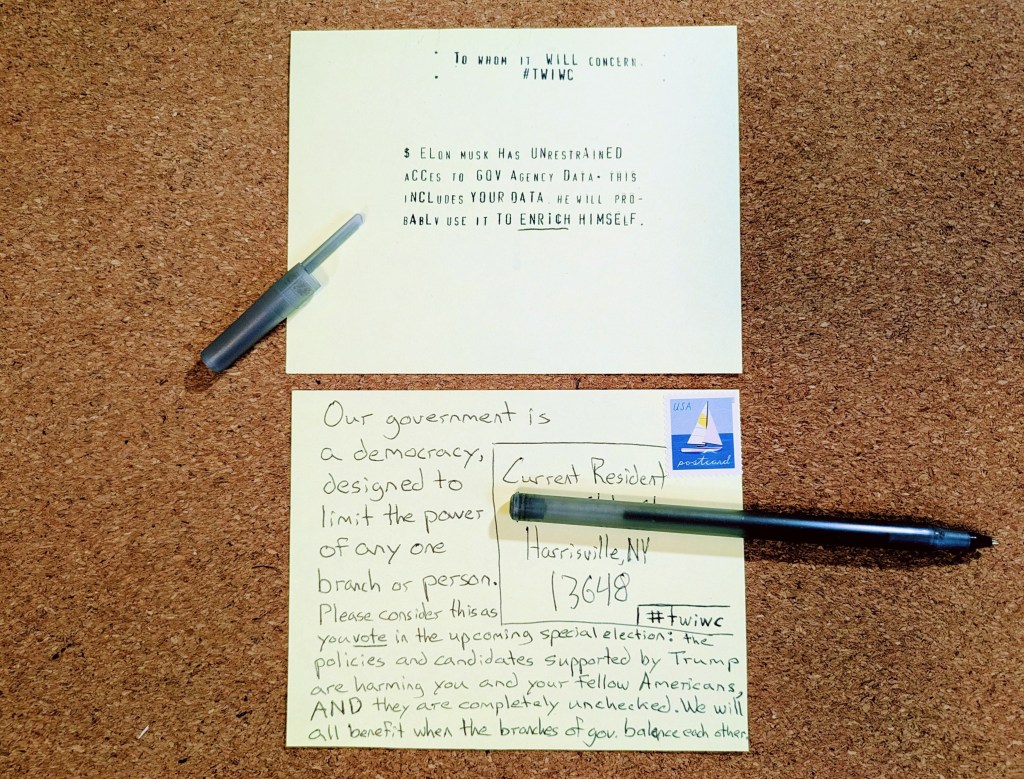 TO WHOM IT WILL CONCERN.
#TWIWC
$ ELON MUSK HAS UNRESTRAINED
ACCES TO GOV AGENCY DATA. THIS
INCLUDES YOUR DATA. HE WILL PRO-
BABLY USE IT TO ENRICH HIMSELF.
Our government is
a democracy,
designed to
limit the power
of any one
branch or person.
Please consider this as
you vote in the upcoming special election: the
policies and candidates supported by Trump
are harming you and your fellow Americans,
AND they are completely unchecked. We will
all benefit when the branches of gov. balance each other.
USA
postcard
Current Resident
Harrisville, NY
13648
#twiwc